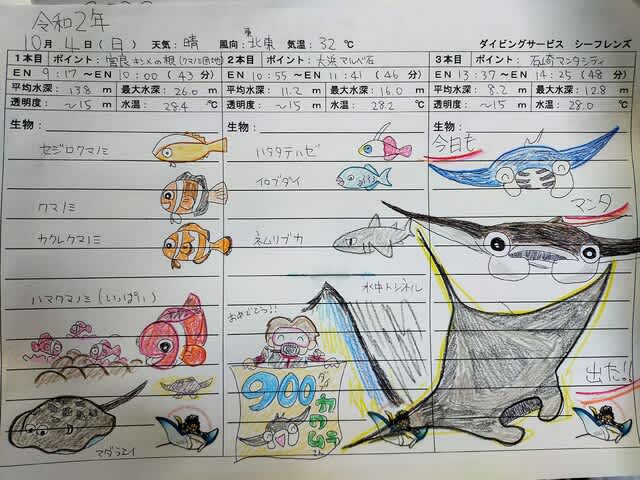 令和2年
10月4日(日) 天気:晴 風向:北東 気温:32℃ ダイビングサービス シーフレンズ
1本目 ポイント:宮良キンメの根(クマノミ団地)
EN 9:17~EN 10:00 (43分)
平均水深:13.8m 最大水深:26.0m
透明度:~15m 水温:28.4℃
生物:
セジロクマノミ
クマノミ
カクレクマノミ
ハマクマノミ(いっぱい)
マダラエイ
2本目 ポイント:大浜マルベ石
EN 10:55~EN 11:41 (46分)
平均水深:11.2m 最大水深:16.0m
透明度:~15m 水温:28.2℃
生物:
ハタタテハゼ
イロブダイ
ネムリブカ
水中トンネル
おめでとう!!
900
カワムラ
3本目 ポイント:石崎マンタシティ
EN 13:37~EN 14:25 (48分)
平均水深:8.2m 最大水深:12.8m
透明度:~15m 水温:28.0℃
生物:
今日も
マンタ
出た!!